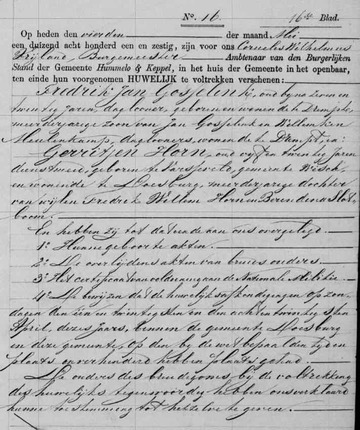 No. 16. 16de Blad.
Op heden den vierden der maand Mei
een duizend acht honderd een en zestig, zijn voor ons Cornelis Wilhelmus
Vrijland, Burgemeester Ambtenaar van den Burgerlijken
Stand der Gemeente Hummelo & Keppel, in het huis der Gemeente in het openbaar,
ten einde hun voorgenomen HUWELIJK te voltrekken verschenen:
Fredrik Jan Gosselink, oud bijna zeven en
twintig jaren, daglooner, geboren en wonende te Drempt,
meerderjarige zoon van Jan Gosselink en Willemken
Meulenkamp, daglooners, wonende te Drempt, en
Gerritjen Horn, oud vijf en twintig jaren
dienstmeid, geboren te Varsseveld, gemeente Wisch,
en wonende te Doesburg, meerderjarige dochter
van wijlen Fredrik Willem Horn en Berendina Slot
boom.
En hebben zij tot dat einde aan ons overgelegd:
1e Hunne geboorte akten.
2e De overlijdens akten van bruids ouders.
3e Het certificaat van voldoening aan de Nationale Militie
4e De bewijzen dat de huwelijksafkondigingen op zon-
dagen den een en twintigsten en acht en twintigsten
April dezes jaars, binnen de gemeente Doesburg
en deze gemeente, op den bij de wet bepaalden tijd en
plaats onverhinderd hebben plaats gehad.
De ouders des bruidegoms bij de voltrekking
des huwelijks tegenwoordig hebben ons verklaard
hunne toestemming tot hetzelve te geven.